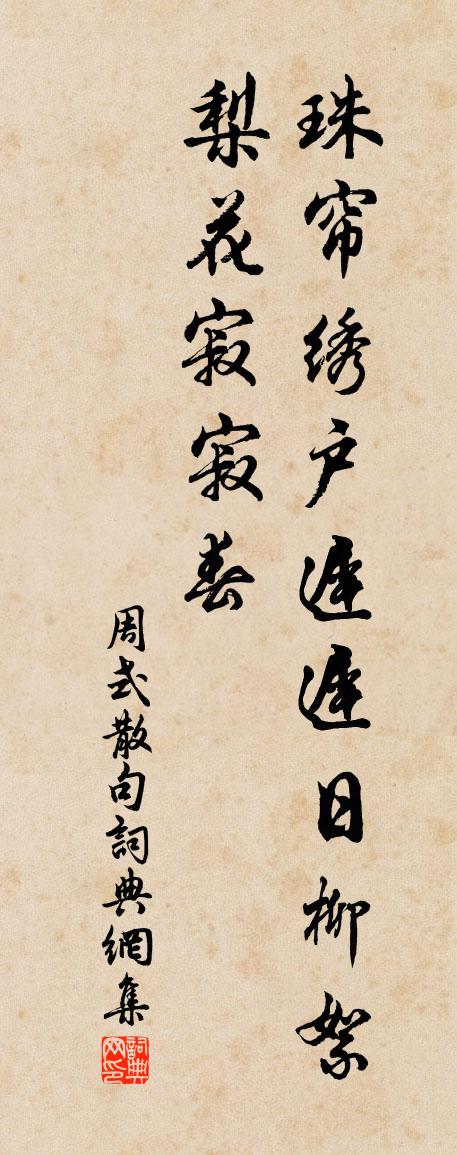 珠帘绣户遲遲日柳絮
梨花寂寂春
周式散句詞典網集
詞典网印